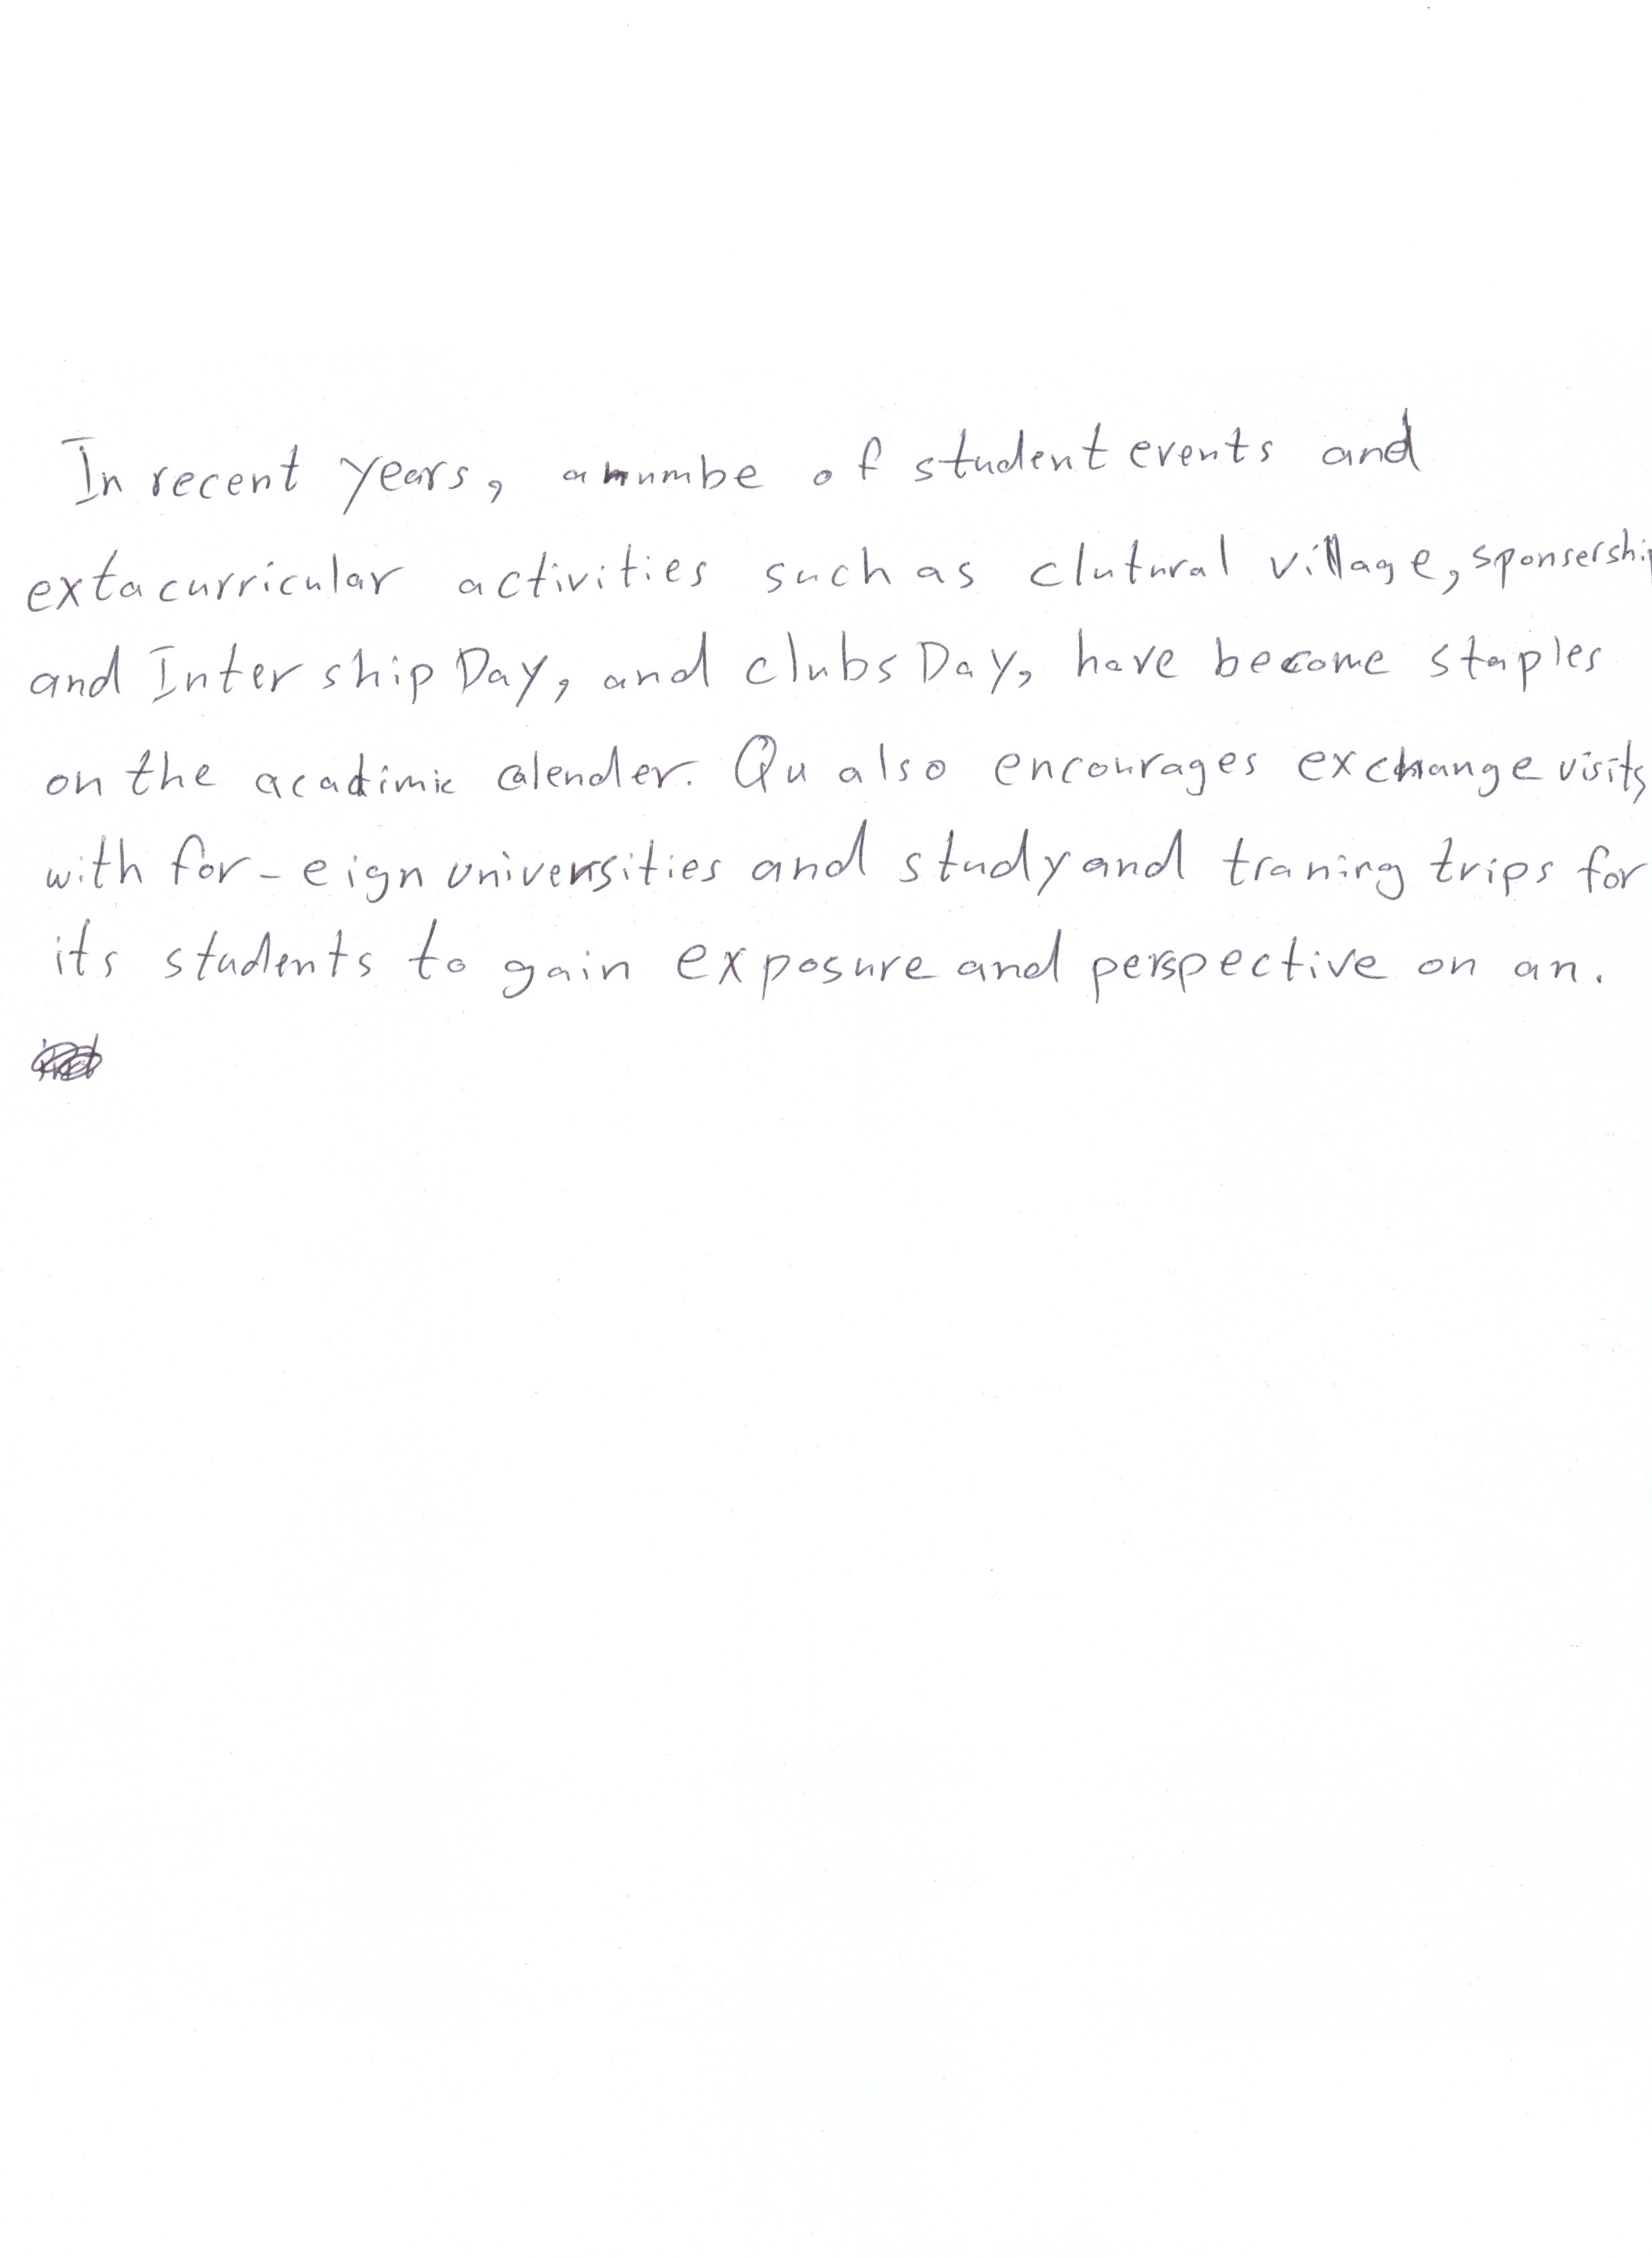 In recent years, a numbe of student events and
extacurricular activities such as clutural village, sponsershi
and Inter ship Day, and clubs Day, have become staples
on the acadimic calender. Qu also encourages exchange visits
with for-eign universities and study and traning trips for
its students to gain exposure and perspective on an.